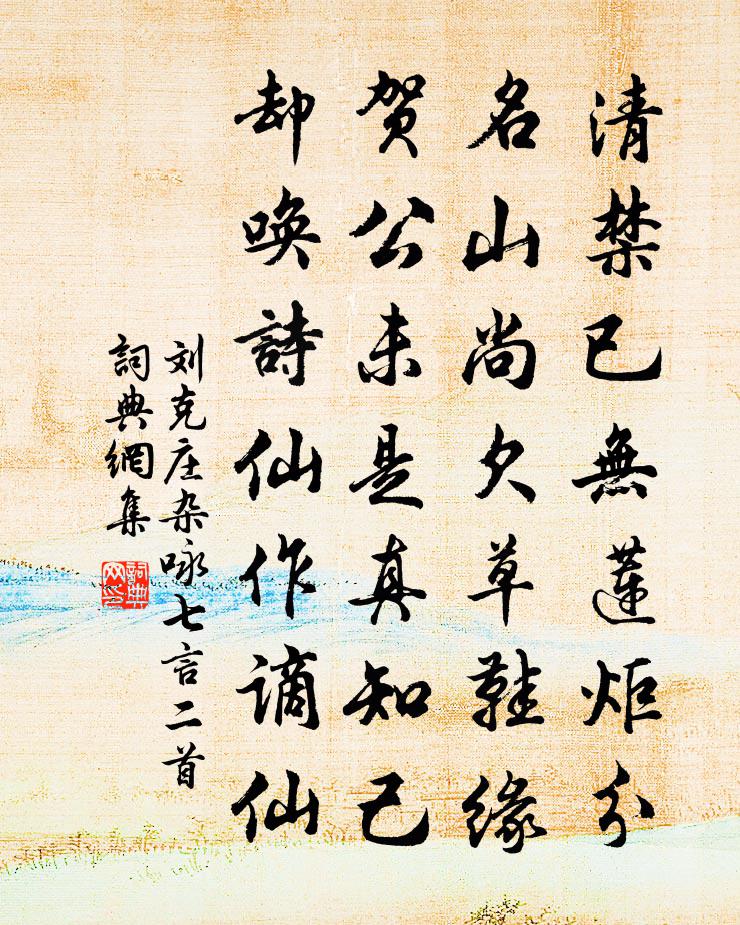 清禁已無蓮炬分
名山尚欠草鞋緣
贺公未是真知己
却喚詩仙作谪仙
刘克庄杂咏七言二首
詞典網集